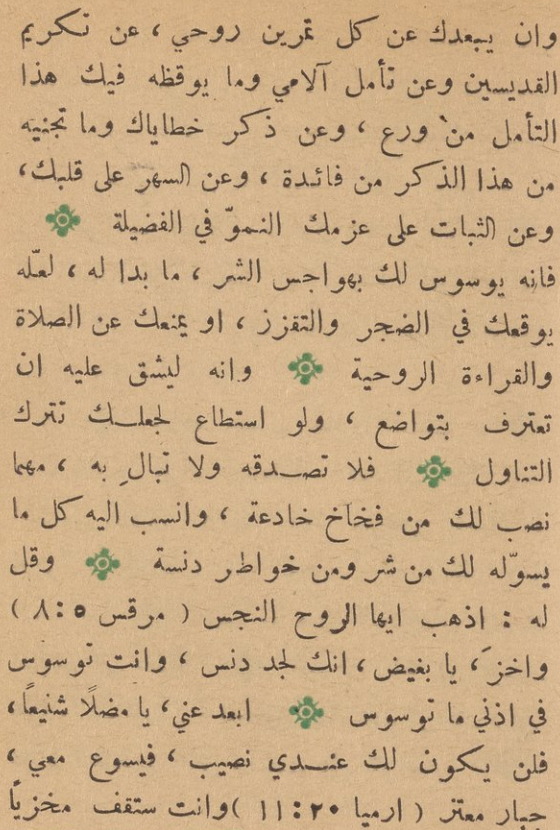 وان يبعدك عن كل تمرين روحي ، عن تكريم
القديسين وعن تأمل آلامي وما يوقظه فيك هذا
التأمل من ورع ، وعن ذكر خطاياك وما تجنيه
من هذا الذكر من فائدة ، وعن السهر على قلبك ،
وعن الثبات على عزمك النموّ في الفضيلة
فانه يوسوس لك بهواجس الشر ، ما بدا له ، لعلّه
يوقعك في الضجر والتقزز ، او يمنعك عن الصلاة
والقراءة الروحية وانه ليشق عليه ان
تعترف بتواضع ، ولو استطاع لجعلك تترك
التناول فلا تصدقه ولا تبالِ به ، مهما
نصب لك من فخاخ خادعة ، وانسب اليه كل ما
يسوّله لك من شر ومن خواطر دنسة وقل
له : اذهب ايها الروح النجس ( مرقس ٥ : ٨ )
واخزَ ، يا بغيض ، انك لجد دنس ، وانت توسوس
في اذني ما توسوس ابعد عني ، يا مضلًا شنيعاً ،
فلن يكون لك عندي نصيب ، فيسوع معي ،
جبار معتز ( ارميا ٢٠ : ١١ ) وانت ستقف مخزياً